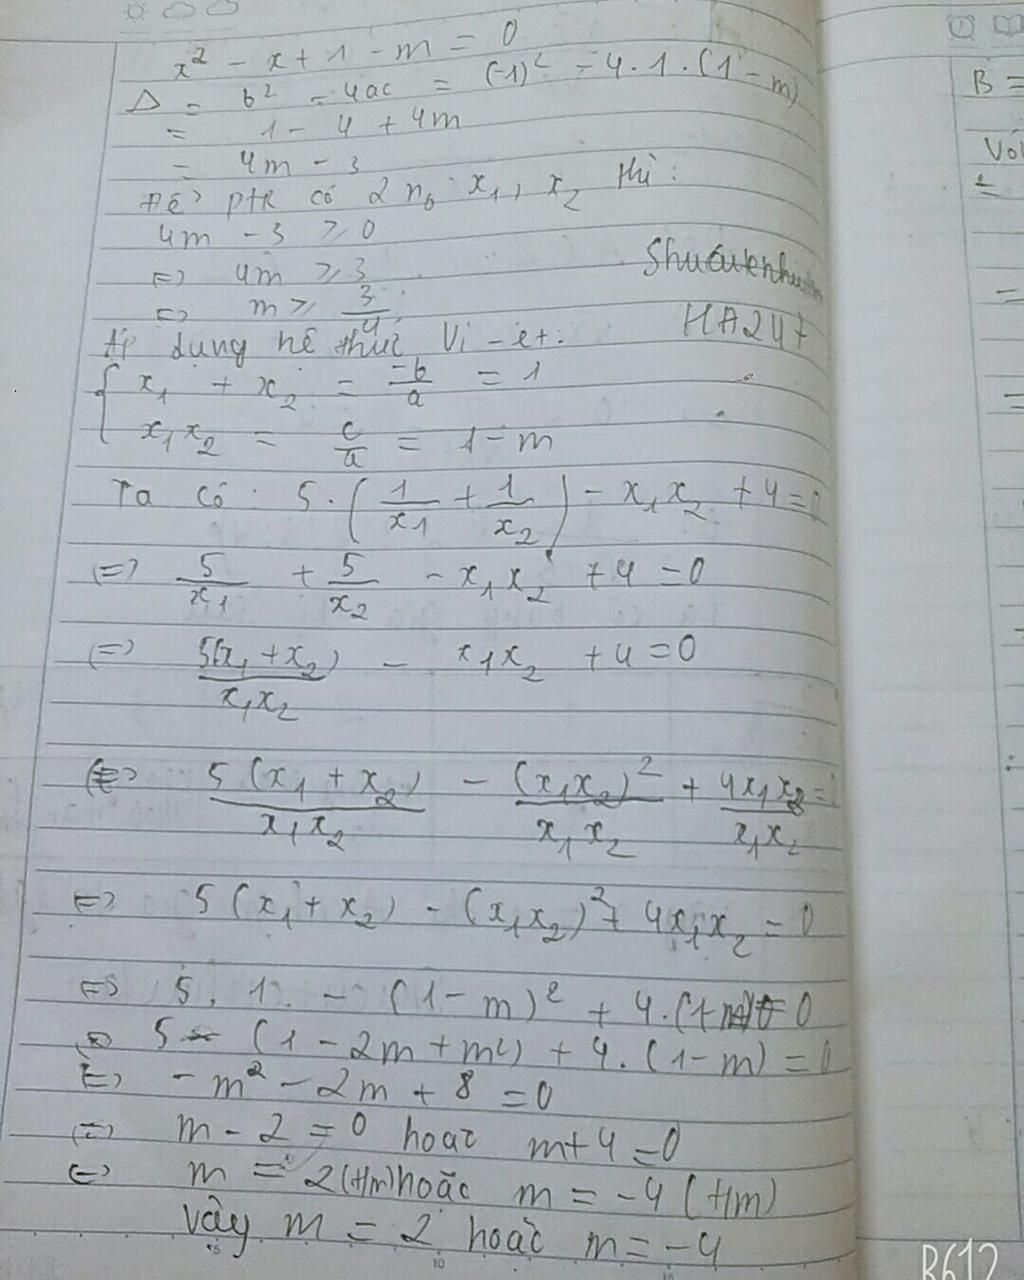 x² - x + 1 - m = 0
Δ = b² - 4ac = (-1)² - 4.1.(1-m)
= 1 - 4 + 4m
= 4m - 3
Để ptr có 2 n₀ x₁, x₂ thì:
4m - 3 ≥ 0
⇔ 4m ≥ 3
⇔ m ≥ 3/4
HA247
Áp dụng hệ thức Vi-et:
{ x₁ + x₂ = -b/a = 1
x₁x₂ = c/a = 1 - m
Ta có: 5.(1/x₁ + 1/x₂) - x₁x₂ + 4 = 0
⇔ 5/x₁ + 5/x₂ - x₁x₂ + 4 = 0
⇔ 5(x₁+x₂)/x₁x₂ - x₁x₂ + 4 = 0
⇔ 5(x₁+x₂)/x₁x₂ - (x₁x₂)²/x₁x₂ + 4x₁x₂/x₁x₂ =
⇔ 5(x₁+x₂) - (x₁x₂)² + 4x₁x₂ = 0
⇔ 5.1. - (1-m)² + 4.(1-m) = 0
⇔ 5 - (1 - 2m + m²) + 4.(1-m) = 0
⇔ -m² - 2m + 8 = 0
⇔ m - 2 = 0 hoặc m + 4 = 0
⇔ m = 2 (t/m) hoặc m = -4 (t/m)
Vậy m = 2 hoặc m = -4
B =
Với
=
=
=
B612